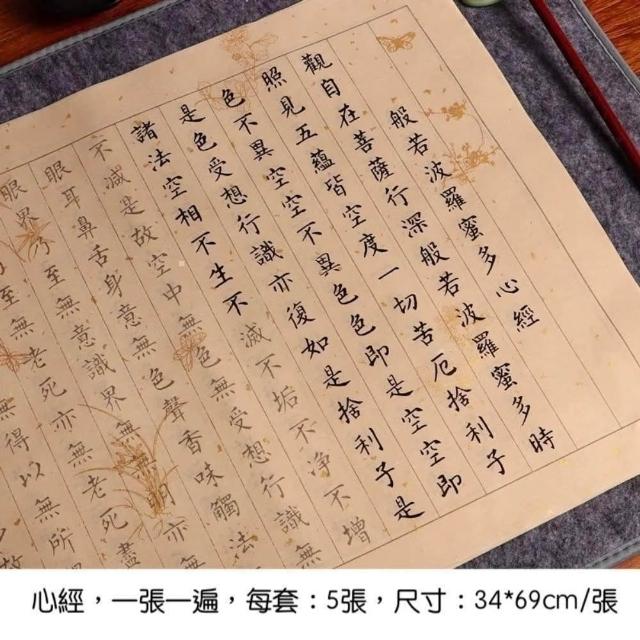 般若波羅蜜多心經
觀自在菩薩行深般若波羅蜜多時
照見五蘊皆空度一切苦厄捨利子
色不異空空不異色色即是空空即
是色受想行識亦復如是捨利子是
諸法空相不生不滅不垢不淨不增
不減是故空中無色無受想行識無
眼耳鼻舌身意無色聲香味觸法
眼界乃至無意識界無無明亦
至無老死亦無老死盡
無得以無所
心經，一張一遍，每套：5張，尺寸：34*69cm/張